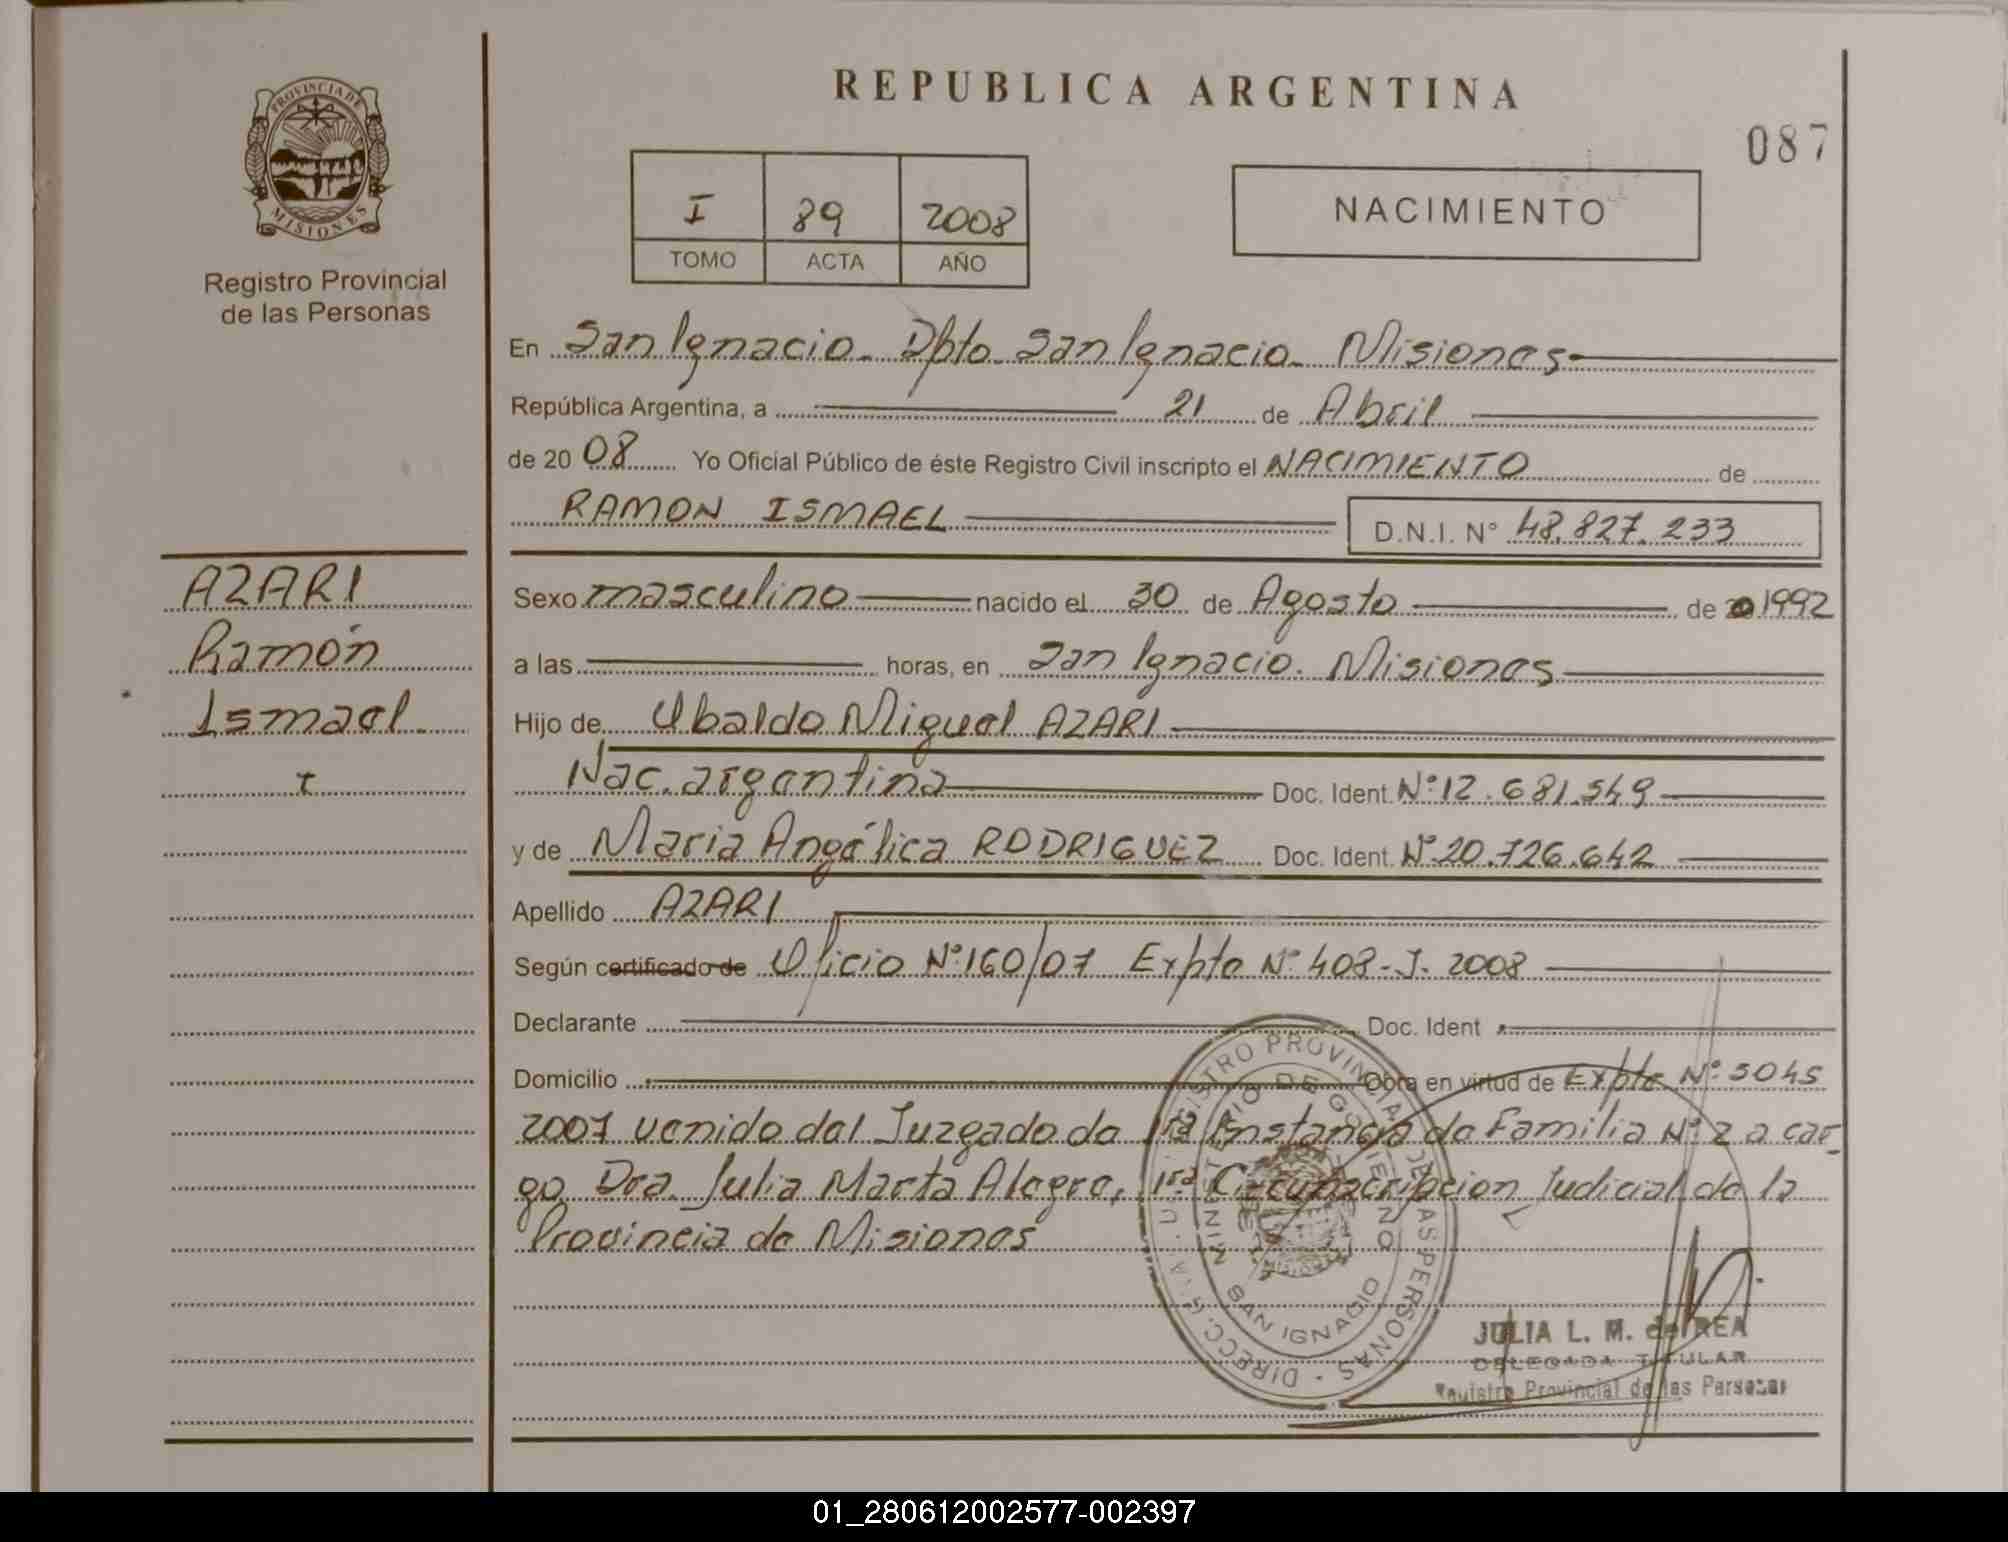 PROVINCIA DE
MISIONES
Registro Provincial
de las Personas
REPUBLICA ARGENTINA
087
I 89 2008
TOMO ACTA AÑO
NACIMIENTO
En San Ignacio. Dpto. San Ignacio. Misiones
República Argentina, a 21 de Abril
de 20 08 Yo Oficial Público de éste Registro Civil inscripto el NACIMIENTO de
RAMON ISMAEL D.N.I. N° 48.827.233
AZARI
Ramón
Ismael
Sexo masculino nacido el 30 de Agosto de 1992
a las horas, en San Ignacio. Misiones
Hijo de Ubaldo Miguel AZARI
Nac. argentina Doc. Ident. N° 12.681.549
y de Maria Angélica RODRIGUEZ Doc. Ident. N° 20.726.642
Apellido AZARI
Según certificado de Oficio N° 160/07 Expte N° 408-J. 2008
Declarante Doc. Ident
Domicilio Obra en virtud de Expte N° 5045
2007 venido del Juzgado de 1ra Instancia de Familia N° 2 a car-
go Dra. Julia Marta Alegre, 1ra Circunscripcion Judicial de la
Provincia de Misiones
REGISTRO PROVINCIAL DE LAS PERSONAS
MINISTERIO DE GOBIERNO
SAN IGNACIO
JULIA L. M. de REA
DELEGADA TITULAR
Registro Provincial de las Personas
01_280612002577-002397